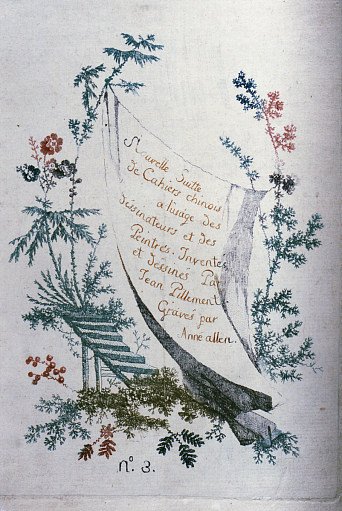 Nouvelle Suitte
de Cahiers chinois
a l'usage des
dessinateurs et des
Peintres. Inventés
et dessinés Par
Jean Pillement
Gravés par
Anne allen.
N.º 3.